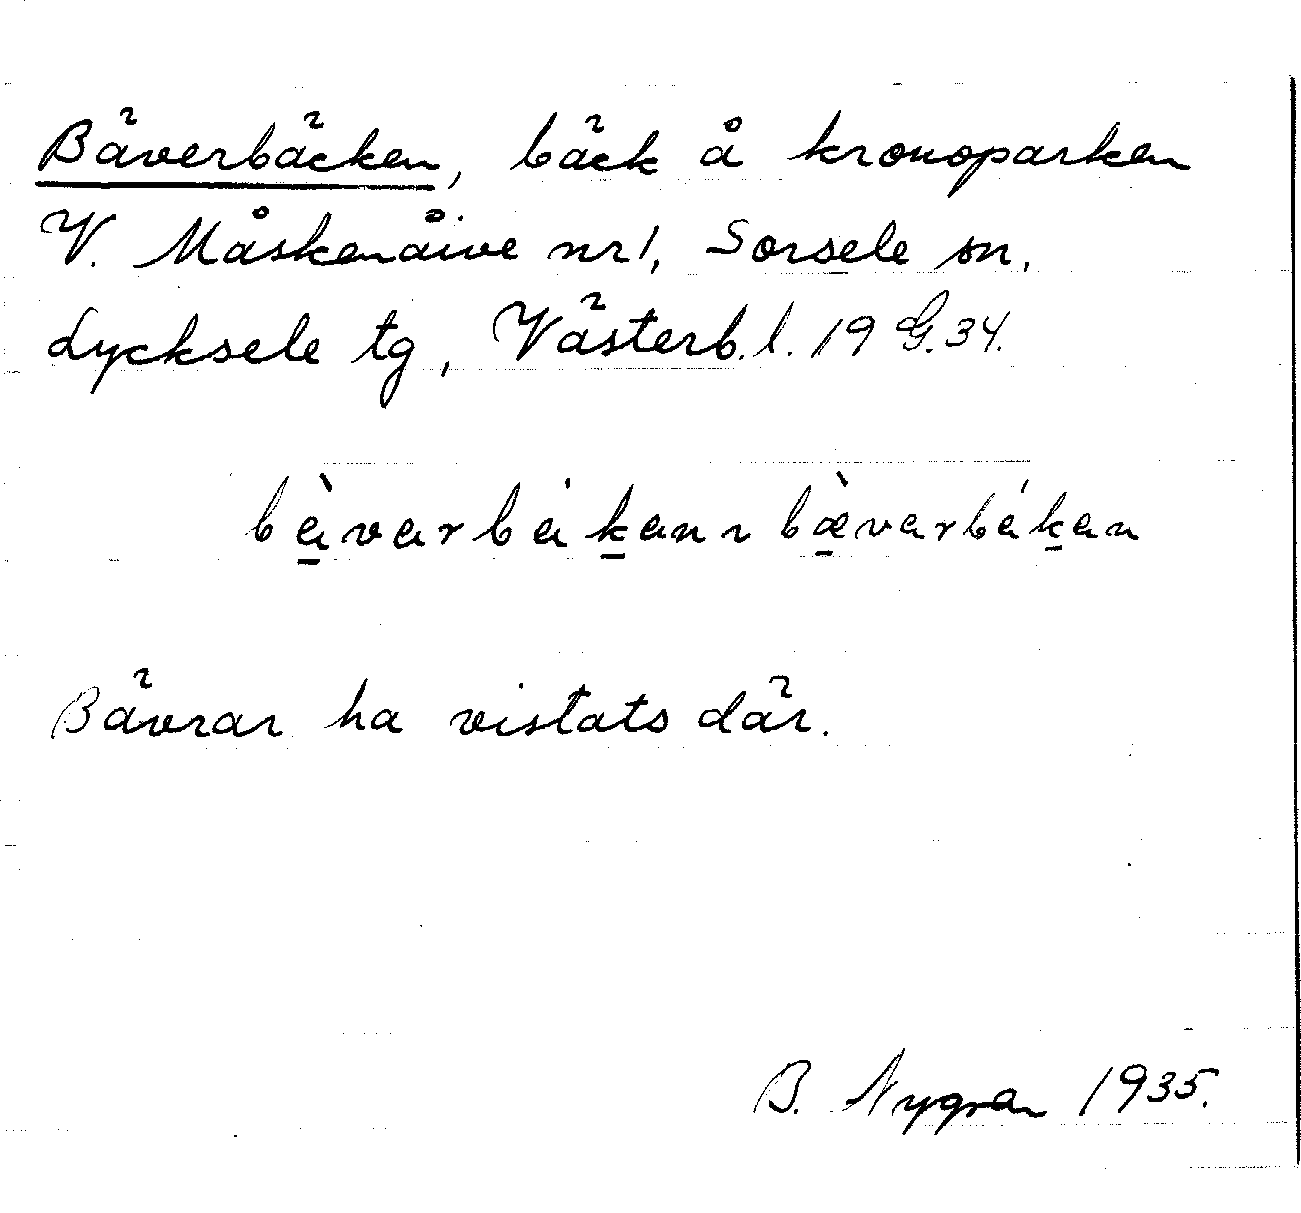 Bäverbäcken, bäck å kronoparken
V. Måskenåive nr 1, Sorsele sn,
Lycksele tg, Västerb. l. 19 G. 34.
bàvarbákan ~ bæ̀varbákan
Bävrar ha vistats där.
B. Nygren 1935.